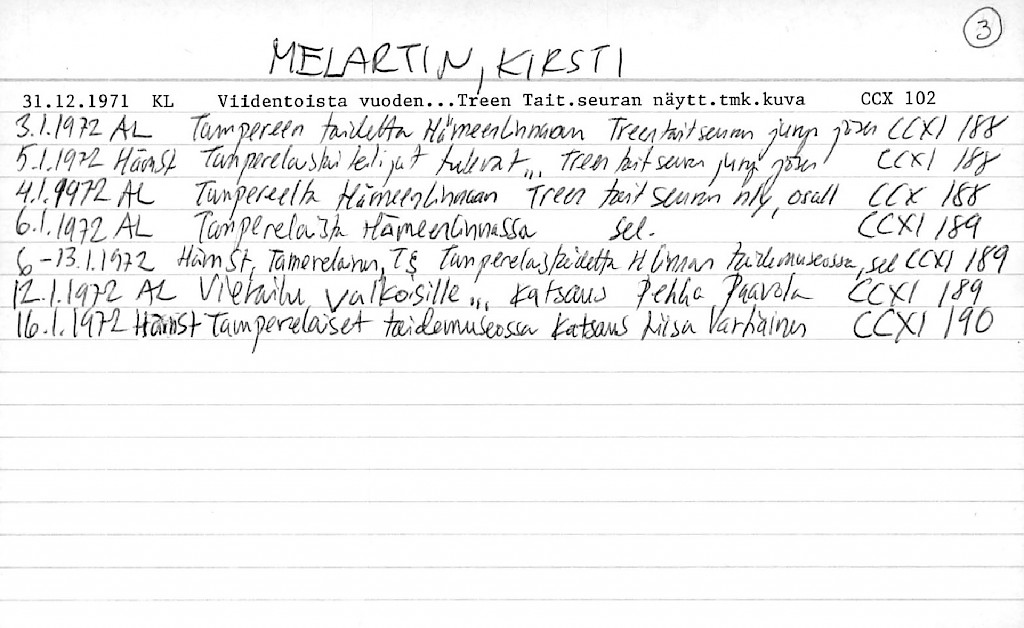 3
MELARTIN, KIRSTI
31.12.1971 KL Viidentoista vuoden...Treen Tait.seuran näytt.tmk.kuva CCX 102
3.1.1972 AL Tampereen taidetta Hämeenlinnaan Treen tait seuran juryn CCXI 188
5.1.1972 HämSt Tamperelaistaiteilijat tulevat... Treen tait seuran CCXI 188
4.1.1972 AL Tampereelta Hämeenlinnaan Treen tait seuran nly, osall CCX 188
6.1.1972 AL Tamperelaista Hämeenlinnassa sel. CCXI 189
6-13.1.1972 HämSt, Tamperelaista H linnan taidemuseossa, sel CCXI 189
12.1.1972 AL Vilahdu valkoisille... Katsaus Pekka Paavola CCXI 189
16.1.1972 HämSt Tamperelaiset taidemuseossa Katsaus Miisa Varhainen CCXI 190